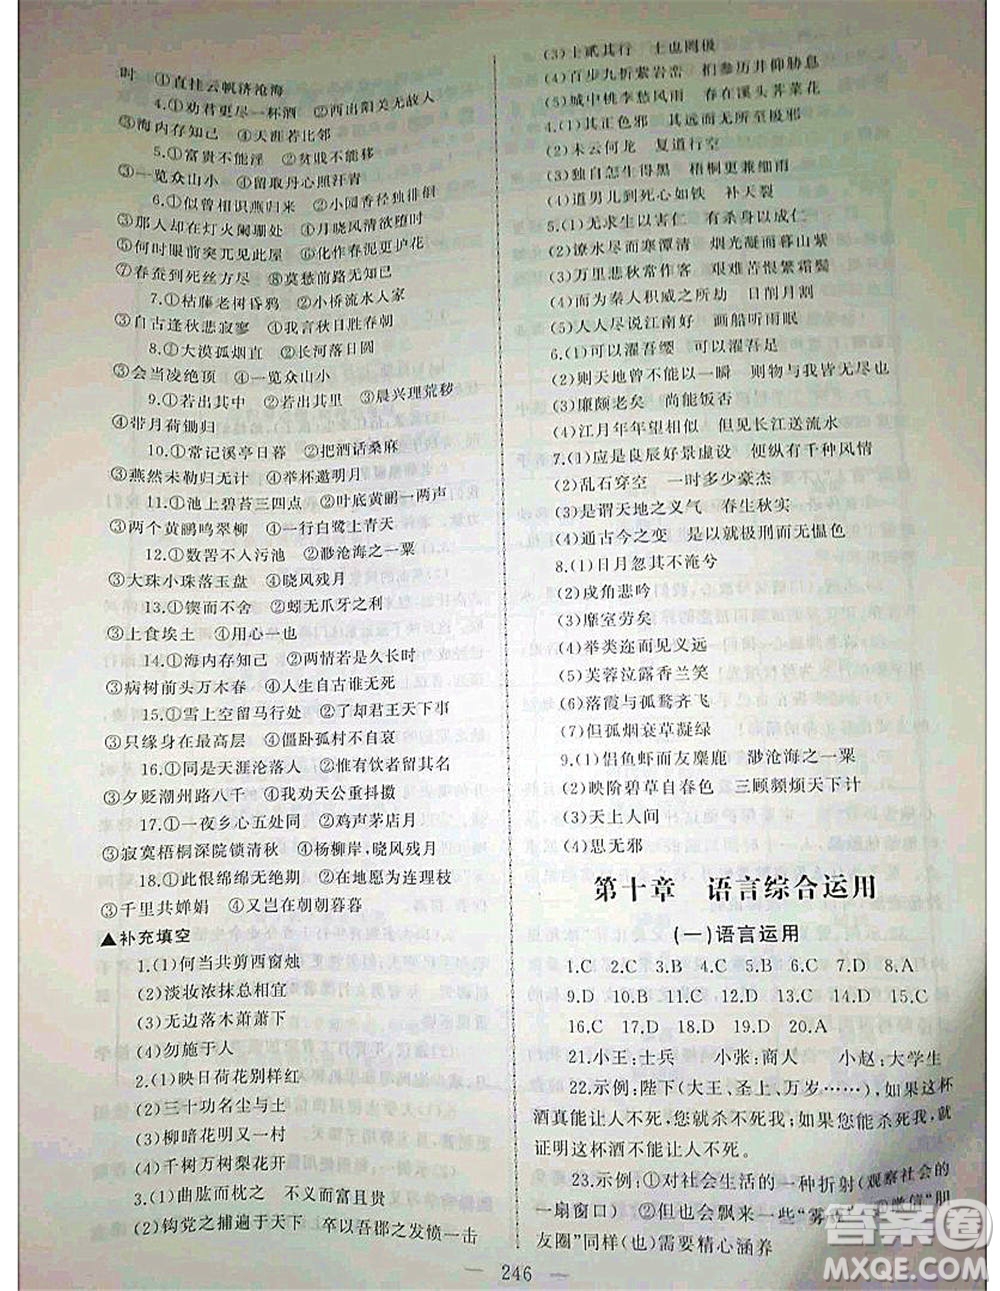 时　④直挂云帆济沧海
4.①劝君更尽一杯酒　②西出阳关无故人
③海内存知己　④天涯若比邻
5.①富贵不能淫　②贫贱不能移
③一览众山小　④留取丹心照汗青
6.①似曾相识燕归来　②小园香径独徘徊
③那人却在灯火阑珊处　④月晓风清欲堕时
⑤何时眼前突兀见此屋　⑥化作春泥更护花
⑦春蚕到死丝方尽　⑧莫愁前路无知己
7.①枯藤老树昏鸦　②小桥流水人家
③自古逢秋悲寂寥　④我言秋日胜春朝
8.①大漠孤烟直　②长河落日圆
③会当凌绝顶　④一览众山小
9.①若出其中　②若出其里　③晨兴理荒秽
④带月荷锄归
10.①常记溪亭日暮　②把酒话桑麻
③燕然未勒归无计　④举杯邀明月
11.①池上碧苔三四点　②叶底黄鹂一两声
③两个黄鹂鸣翠柳　④一行白鹭上青天
12.①数罟不入污池　②渺沧海之一粟
③大珠小珠落玉盘　④晓风残月
13.①锲而不舍　②蚓无爪牙之利
③上食埃土　④用心一也
14.①海内存知己　②两情若是久长时
③病树前头万木春　④人生自古谁无死
15.①雪上空留马行处　②了却君王天下事
③只缘身在最高层　④僵卧孤村不自哀
16.①同是天涯沦落人　②惟有饮者留其名
③夕贬潮州路八千　④我劝天公重抖擞
17.①一夜乡心五处同　②鸡声茅店月
③寂寞梧桐深院锁清秋　④杨柳岸,晓风残月
18.①此恨绵绵无绝期　②在地愿为连理枝
③千里共婵娟　④又岂在朝朝暮暮
▲补充填空
1.(1)何当共剪西窗烛
(2)淡妆浓抹总相宜
(3)无边落木萧萧下
(4)勿施于人
2.(1)映日荷花别样红
(2)三十功名尘与土
(3)柳暗花明又一村
(4)千树万树梨花开
3.(1)曲肱而枕之　不义而富且贵
(2)钩党之捕遍于天下　卒以吾郡之发愤一击
(3)士贰其行　士也罔极
(4)百步九折萦岩峦　扪参历井仰胁息
(5)城中桃李愁风雨　春在溪头荠菜花
4.(1)其正色邪　其远而无所至极邪
(2)未云何龙　复道行空
(3)独自怎生得黑　梧桐更兼细雨
(4)道男儿到死心如铁　补天裂
5.(1)无求生以害仁　有杀身以成仁
(2)潦水尽而寒潭清　烟光凝而暮山紫
(3)万里悲秋常作客　艰难苦恨繁霜鬓
(4)而为秦人积威之所劫　日削月割
(5)人人尽说江南好　画船听雨眠
6.(1)可以濯吾缨　可以濯吾足
(2)则天地曾不能以一瞬　则物与我皆无尽也
(3)廉颇老矣　尚能饭否
(4)江月年年望相似　但见长江送流水
7.(1)应是良辰好景虚设　便纵有千种风情
(2)乱石穿空　一时多少豪杰
(3)是谓天地之义气　春生秋实
(4)通古今之变　是以就极刑而无愠色
8.(1)日月忽其不淹兮
(2)戍角悲吟
(3)靡室劳矣
(4)举类迩而见义远
(5)芙蓉泣露香兰笑
(6)落霞与孤鹜齐飞
(7)但孤烟衰草凝绿
9.(1)侣鱼虾而友麋鹿　渺沧海之一粟
(2)映阶碧草自春色　三顾频烦天下计
(3)天上人间
(4)思无邪
第十章　语言综合运用
(一)语言运用
1.C　2.C　3.B　4.C　5.C　6.C　7.D　8.A
9.D　10.B　11.C　12.D　13.D　14.D　15.C
16.C　17.D　18.D　19.D　20.A
21.小王:士兵　小张:商人　小赵:大学生
22.示例:陛下(大王、圣上、万岁……),如果这杯
酒真能让人不死,您就杀不死我;如果您能杀死我,就
证明这杯酒不能让人不死。
23.示例:①对社会生活的一种折射(观察社会的
一扇窗口)　②也会飘来一些“雾霾”　①微信“朋
友圈”同样(也)需要精心涵养
246
答案圈
MXQE.COM